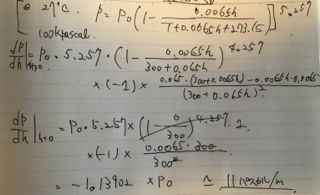 @ 27°C. P = P₀(1 - 0.0065h / T+0.0065h+273.15)^5.257
100kpascal.
dP/dh|h=0 = P₀·5.257·(1 - 0.0065h / 300+0.0065h)^4.257
×(-1)× 0.065·(300+0.0065h) - 0.0065h·0.065 / (300+0.0065h)²
dP/dh|h=0 = P₀·5.257×(1 - 0/300)^4.257
×(-1)× 0.0065·300 / 300²
= -1.1390 × P₀ ≈ 11 /m